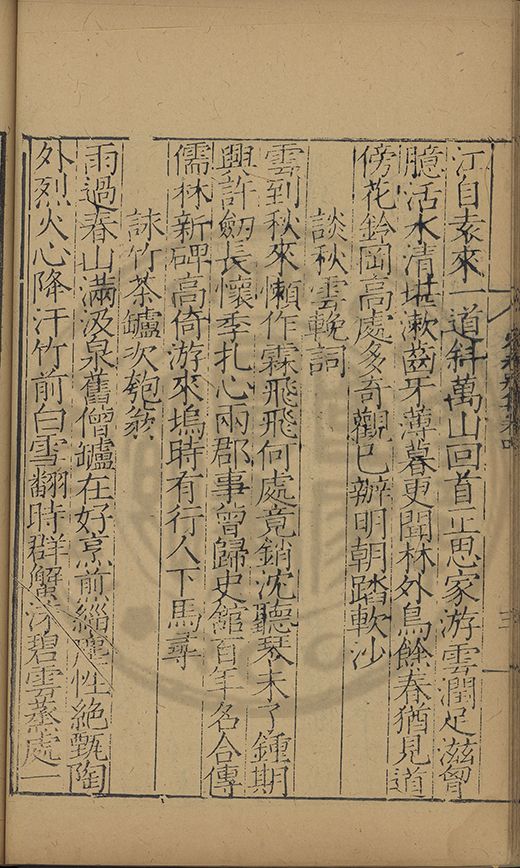 江自袁來一道斜萬山回首正思家游雲潤足滋胷
臆活水清堪漱齒牙薄暮更聞林外鳥餘春猶見道
傍花鈐岡高處多奇觀已辦明朝踏軟沙
談秋雲輓詞
雲到秋來懶作霖飛飛何處竟銷沈聽琴未了鍾期
興許劒長懷季札心兩郡事曾歸史館百年名合傳
儒林新碑高倚游來塢時有行人下馬尋
詠竹茶鑪次匏翁
雨過春山滿汲泉舊僧鑪在好烹煎緇塵性絶甄陶
外烈火心降汗竹前白雪翻時群蟹浮碧雲蒸處一